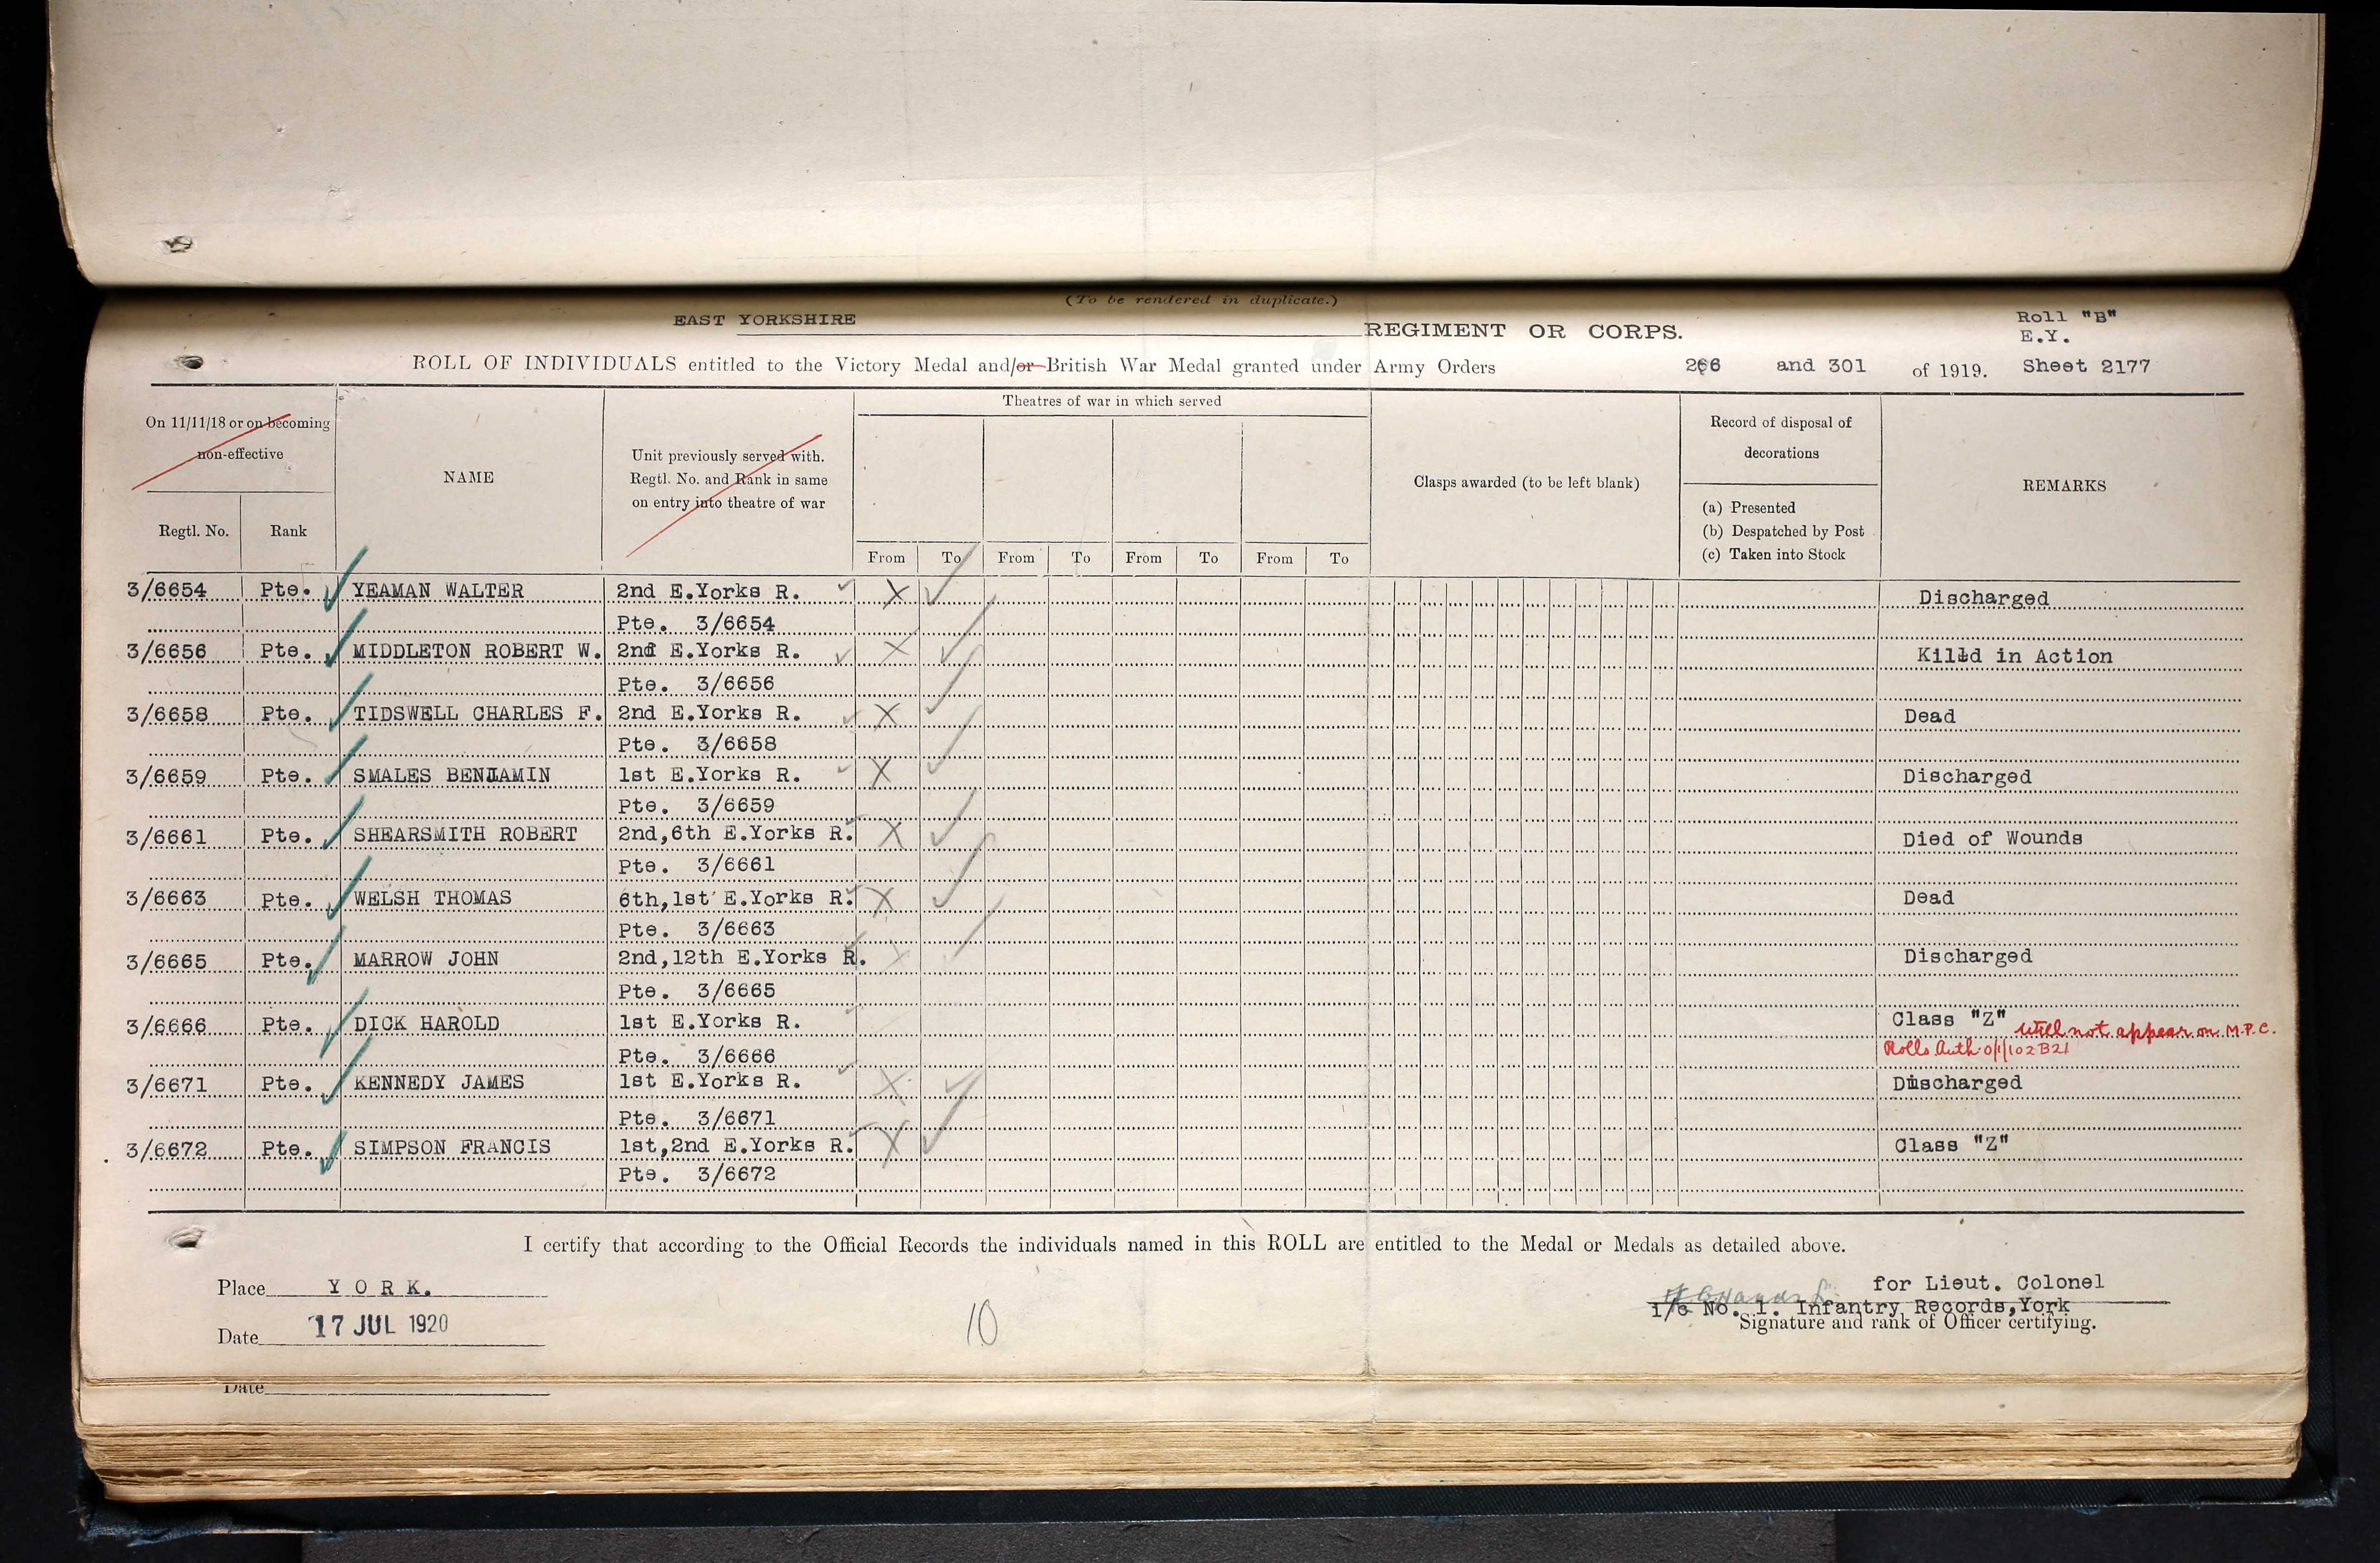 (To be rendered in duplicate.)
EAST YORKSHIRE REGIMENT OR CORPS.
Roll "B"
E.Y.
Sheet 2177
ROLL OF INDIVIDUALS entitled to the Victory Medal and/or British War Medal granted under Army Orders 266 and 301 of 1919.
On 11/11/18 or on becoming
non-effective
Regtl. No. Rank
NAME
Unit previously served with.
Regtl. No. and Rank in same
on entry into theatre of war
Theatres of war in which served
From To From To From To From To
Clasps awarded (to be left blank)
Record of disposal of
decorations
(a) Presented
(b) Despatched by Post
(c) Taken into Stock
REMARKS
3/6654 Pte. YEAMAN WALTER 2nd E.Yorks R. X Discharged
Pte. 3/6654
3/6656 Pte. MIDDLETON ROBERT W. 2nd E.Yorks R. X Killd in Action
Pte. 3/6656
3/6658 Pte. TIDSWELL CHARLES F. 2nd E.Yorks R. X Dead
Pte. 3/6658
3/6659 Pte. SMALES BENJAMIN 1st E.Yorks R. X Discharged
Pte. 3/6659
3/6661 Pte. SHEARSMITH ROBERT 2nd,6th E.Yorks R. X Died of Wounds
Pte. 3/6661
3/6663 Pte. WELSH THOMAS 6th,1st E.Yorks R. X Dead
Pte. 3/6663
3/6665 Pte. MARROW JOHN 2nd,12th E.Yorks R. X Discharged
Pte. 3/6665
3/6666 Pte. DICK HAROLD 1st E.Yorks R. Class "Z" Will not appear on M.P.C.
Pte. 3/6666 Rolls Auth. 0/1/102 B21
3/6671 Pte. KENNEDY JAMES 1st E.Yorks R. X Discharged
Pte. 3/6671
3/6672 Pte. SIMPSON FRANCIS 1st,2nd E.Yorks R. X Class "Z"
Pte. 3/6672
I certify that according to the Official Records the individuals named in this ROLL are entitled to the Medal or Medals as detailed above.
Place YORK.
Date 17 JUL 1920
10
for Lieut. Colonel
I/c No. 1. Infantry Records,York
Signature and rank of Officer certifying.
Date